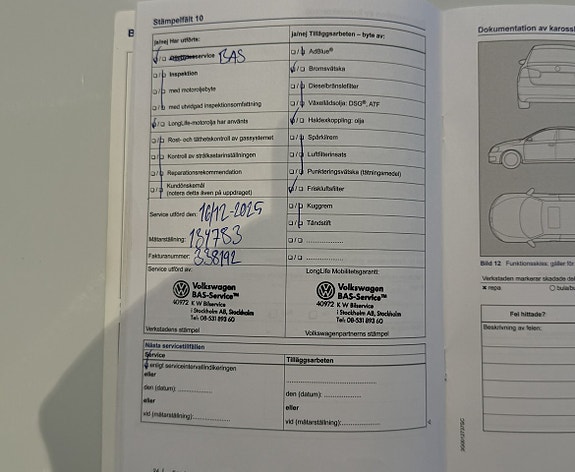 Stämpelfält 10
ja/nej Har utförts:
service BAS
Inspektion
med motoroljebyte
med utvidgad inspektionsomfattning
LongLife-motorolja har använts
Rost- och täthetskontroll av gassystemet
Kontroll av strålkastarinställningen
Reparationsrekommendation
Kundönskemål
(notera detta även på uppdraget)
Service utförd den: 16/12-2025
Mätarställning: 134783
Fakturanummer: 338192
ja/nej Tilläggsarbeten – byte av:
AdBlue®
Bromsvätska
Dieselbränslefilter
Växellådsolja: DSG®, ATF
Haldexkoppling: olja
Spårkilrem
Luftfilterinsats
Punkteringsvätska (tätningsmedel)
Friskluftsfilter
Kuggrem
Tändstift
Service utförd av:
Volkswagen
BAS-Service™
40972 K W Bilservice
i Stockholm AB, Stockholm
Tel: 08-531 893 60
Verkstadens stämpel
LongLife Mobilitetsgaranti:
Volkswagen
BAS-Service™
40972 K W Bilservice
i Stockholm AB, Stockholm
Tel: 08-531 893 60
Volkswagenpartnerns stämpel
Nästa servicetillfällen
Service
enligt serviceintervallindikeringen
eller
den (datum):
eller
vid (mätarställning):
Tilläggsarbeten
den (datum):
eller
vid (mätarställning):
Dokumentation av kaross
Bild 12 Funktionsskiss: gäller för
Verkstaden markerar skadade del
repa:
Fel hittade?
Beskrivning av felen: